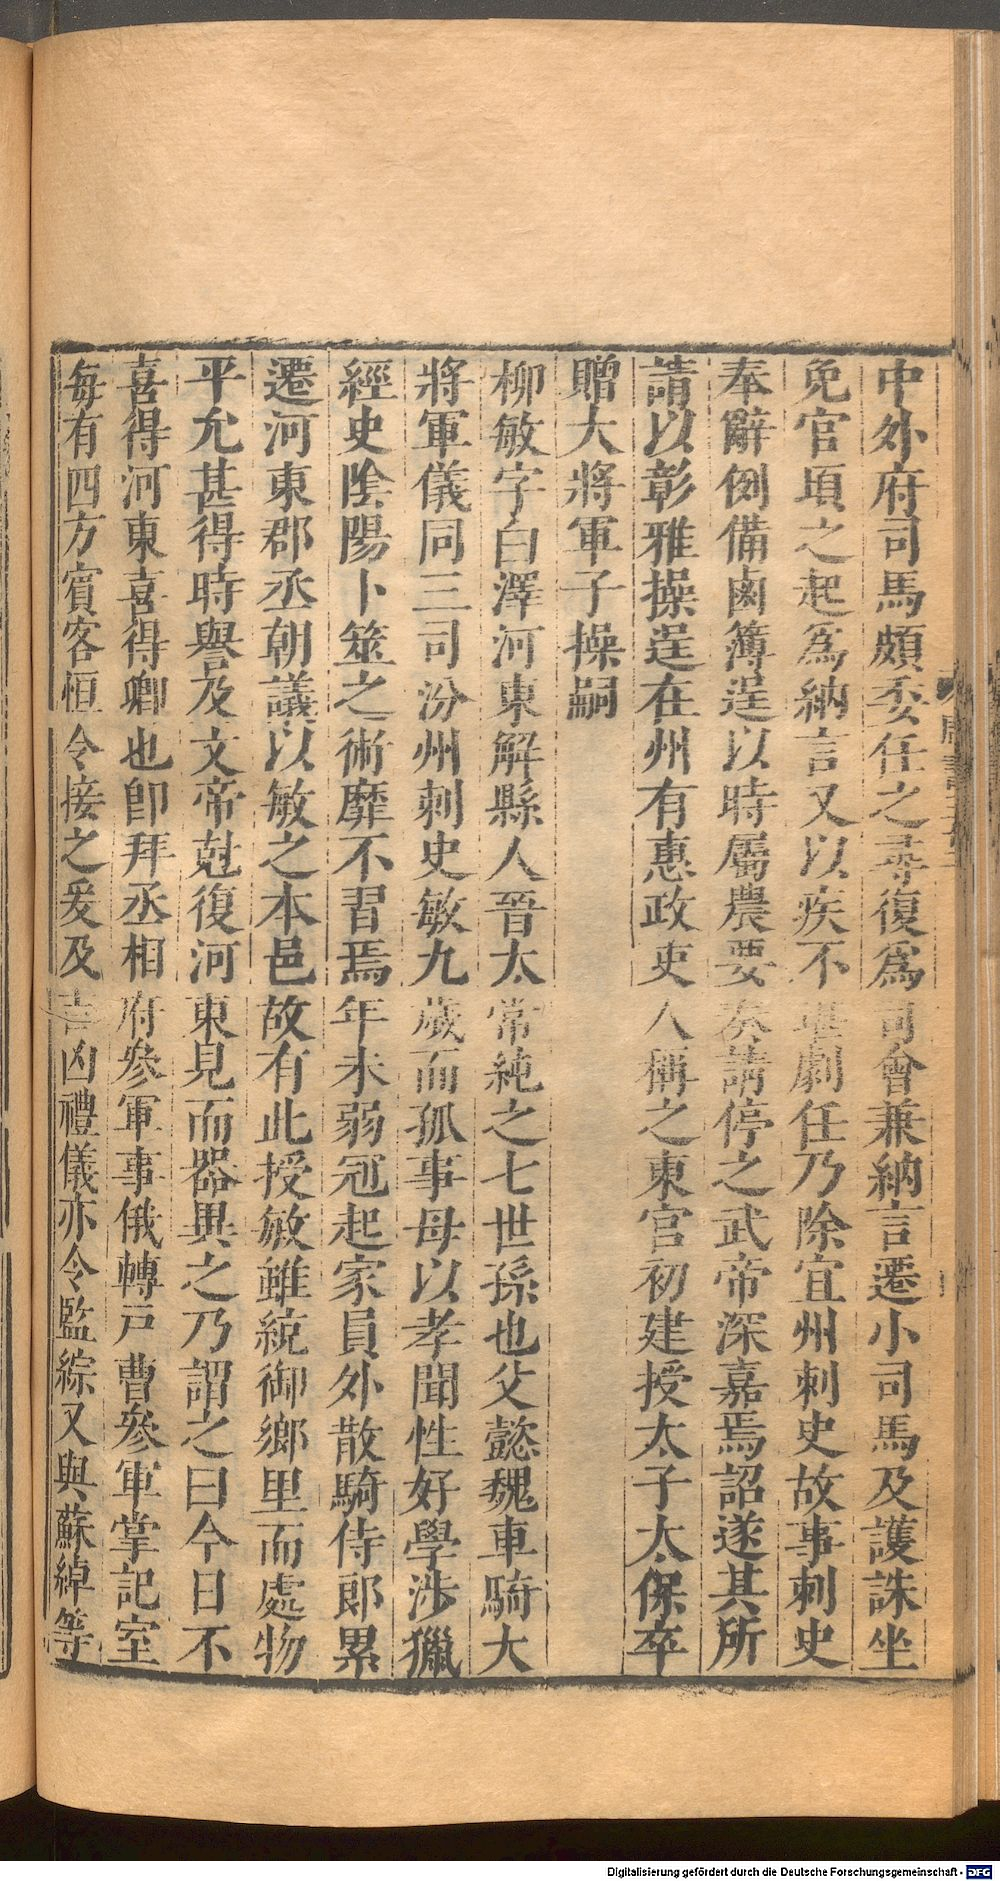 中外府司馬頗委任之尋復爲司會兼納言遷小司馬及護誅坐
免官頃之起爲納言又以疾不堪劇任乃除宜州刺史故事刺史
奉辭例備鹵簿逞以時屬農要奏請停之武帝深嘉焉詔遂其所
請以彰雅操逞在州有惠政吏人稱之東宮初建授太子太保卒
贈大將軍子操嗣
柳敏字白澤河東解縣人晉太常純之七世孫也父懿魏車騎大
將軍儀同三司汾州刺史敏九歲而孤事母以孝聞性好學涉獵
經史陰陽卜筮之術靡不習焉年未弱冠起家員外散騎侍郎累
遷河東郡丞朝議以敏之本邑故有此授敏雖統御鄉里而處物
平允甚得時譽及文帝尅復河東見而器異之乃謂之曰今日不
喜得河東喜得卿也卽拜丞相府參軍事俄轉戸曹參軍掌記室
每有四方賓客恒令接之爰及吉凶禮儀亦令監綜又與蘇綽等
Digitalisierung gefördert durch die Deutsche Forschungsgemeinschaft - DFG